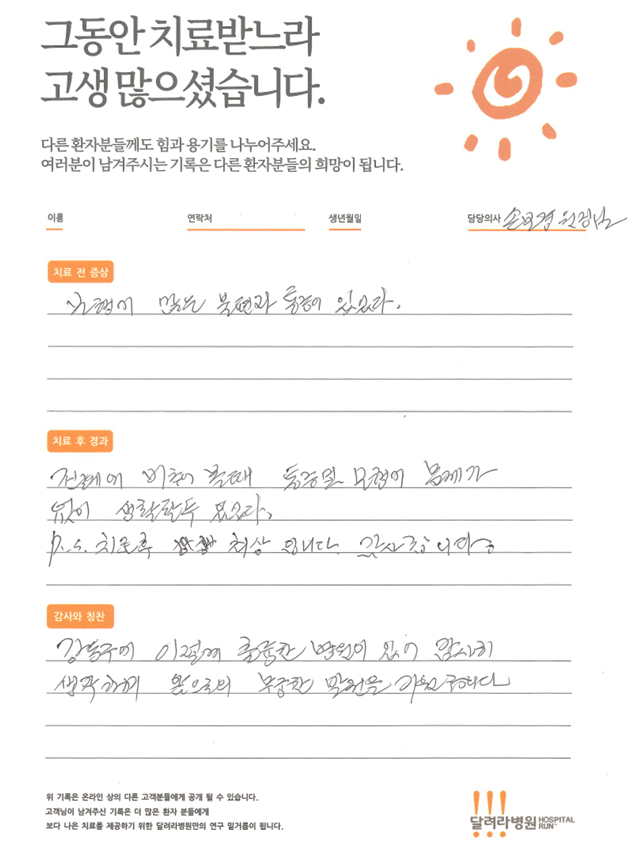 그동안 치료받느라
고생 많으셨습니다.
다른 환자분들께도 힘과 용기를 나누어주세요.
여러분이 남겨주시는 기록은 다른 환자분들의 희망이 됩니다.
이름 연락처 생년월일 담당의사 원장님
치료 전 증상
많은 불편과 통증이 있었다.
치료 후 경과
전체에 비하여 볼때 통증및 보행에 문제가
없이 생활할수 있었다.
P.S. 치료후 최상 입니다. 감사합니다.
감사와 칭찬
강동구에 이렇게 훌륭한 병원이 있어 감사히
생각하며 앞으로의 무궁한 발전을 기원합니다
위 기록은 온라인 상의 다른 고객분들에게 공개 될 수 있습니다.
고객님이 남겨주신 기록은 더 많은 환자 분들에게
보다 나은 치료를 제공하기 위한 달려라병원만의 연구 밑거름이 됩니다.
!!!
달려라병원 HOSPITAL RUN